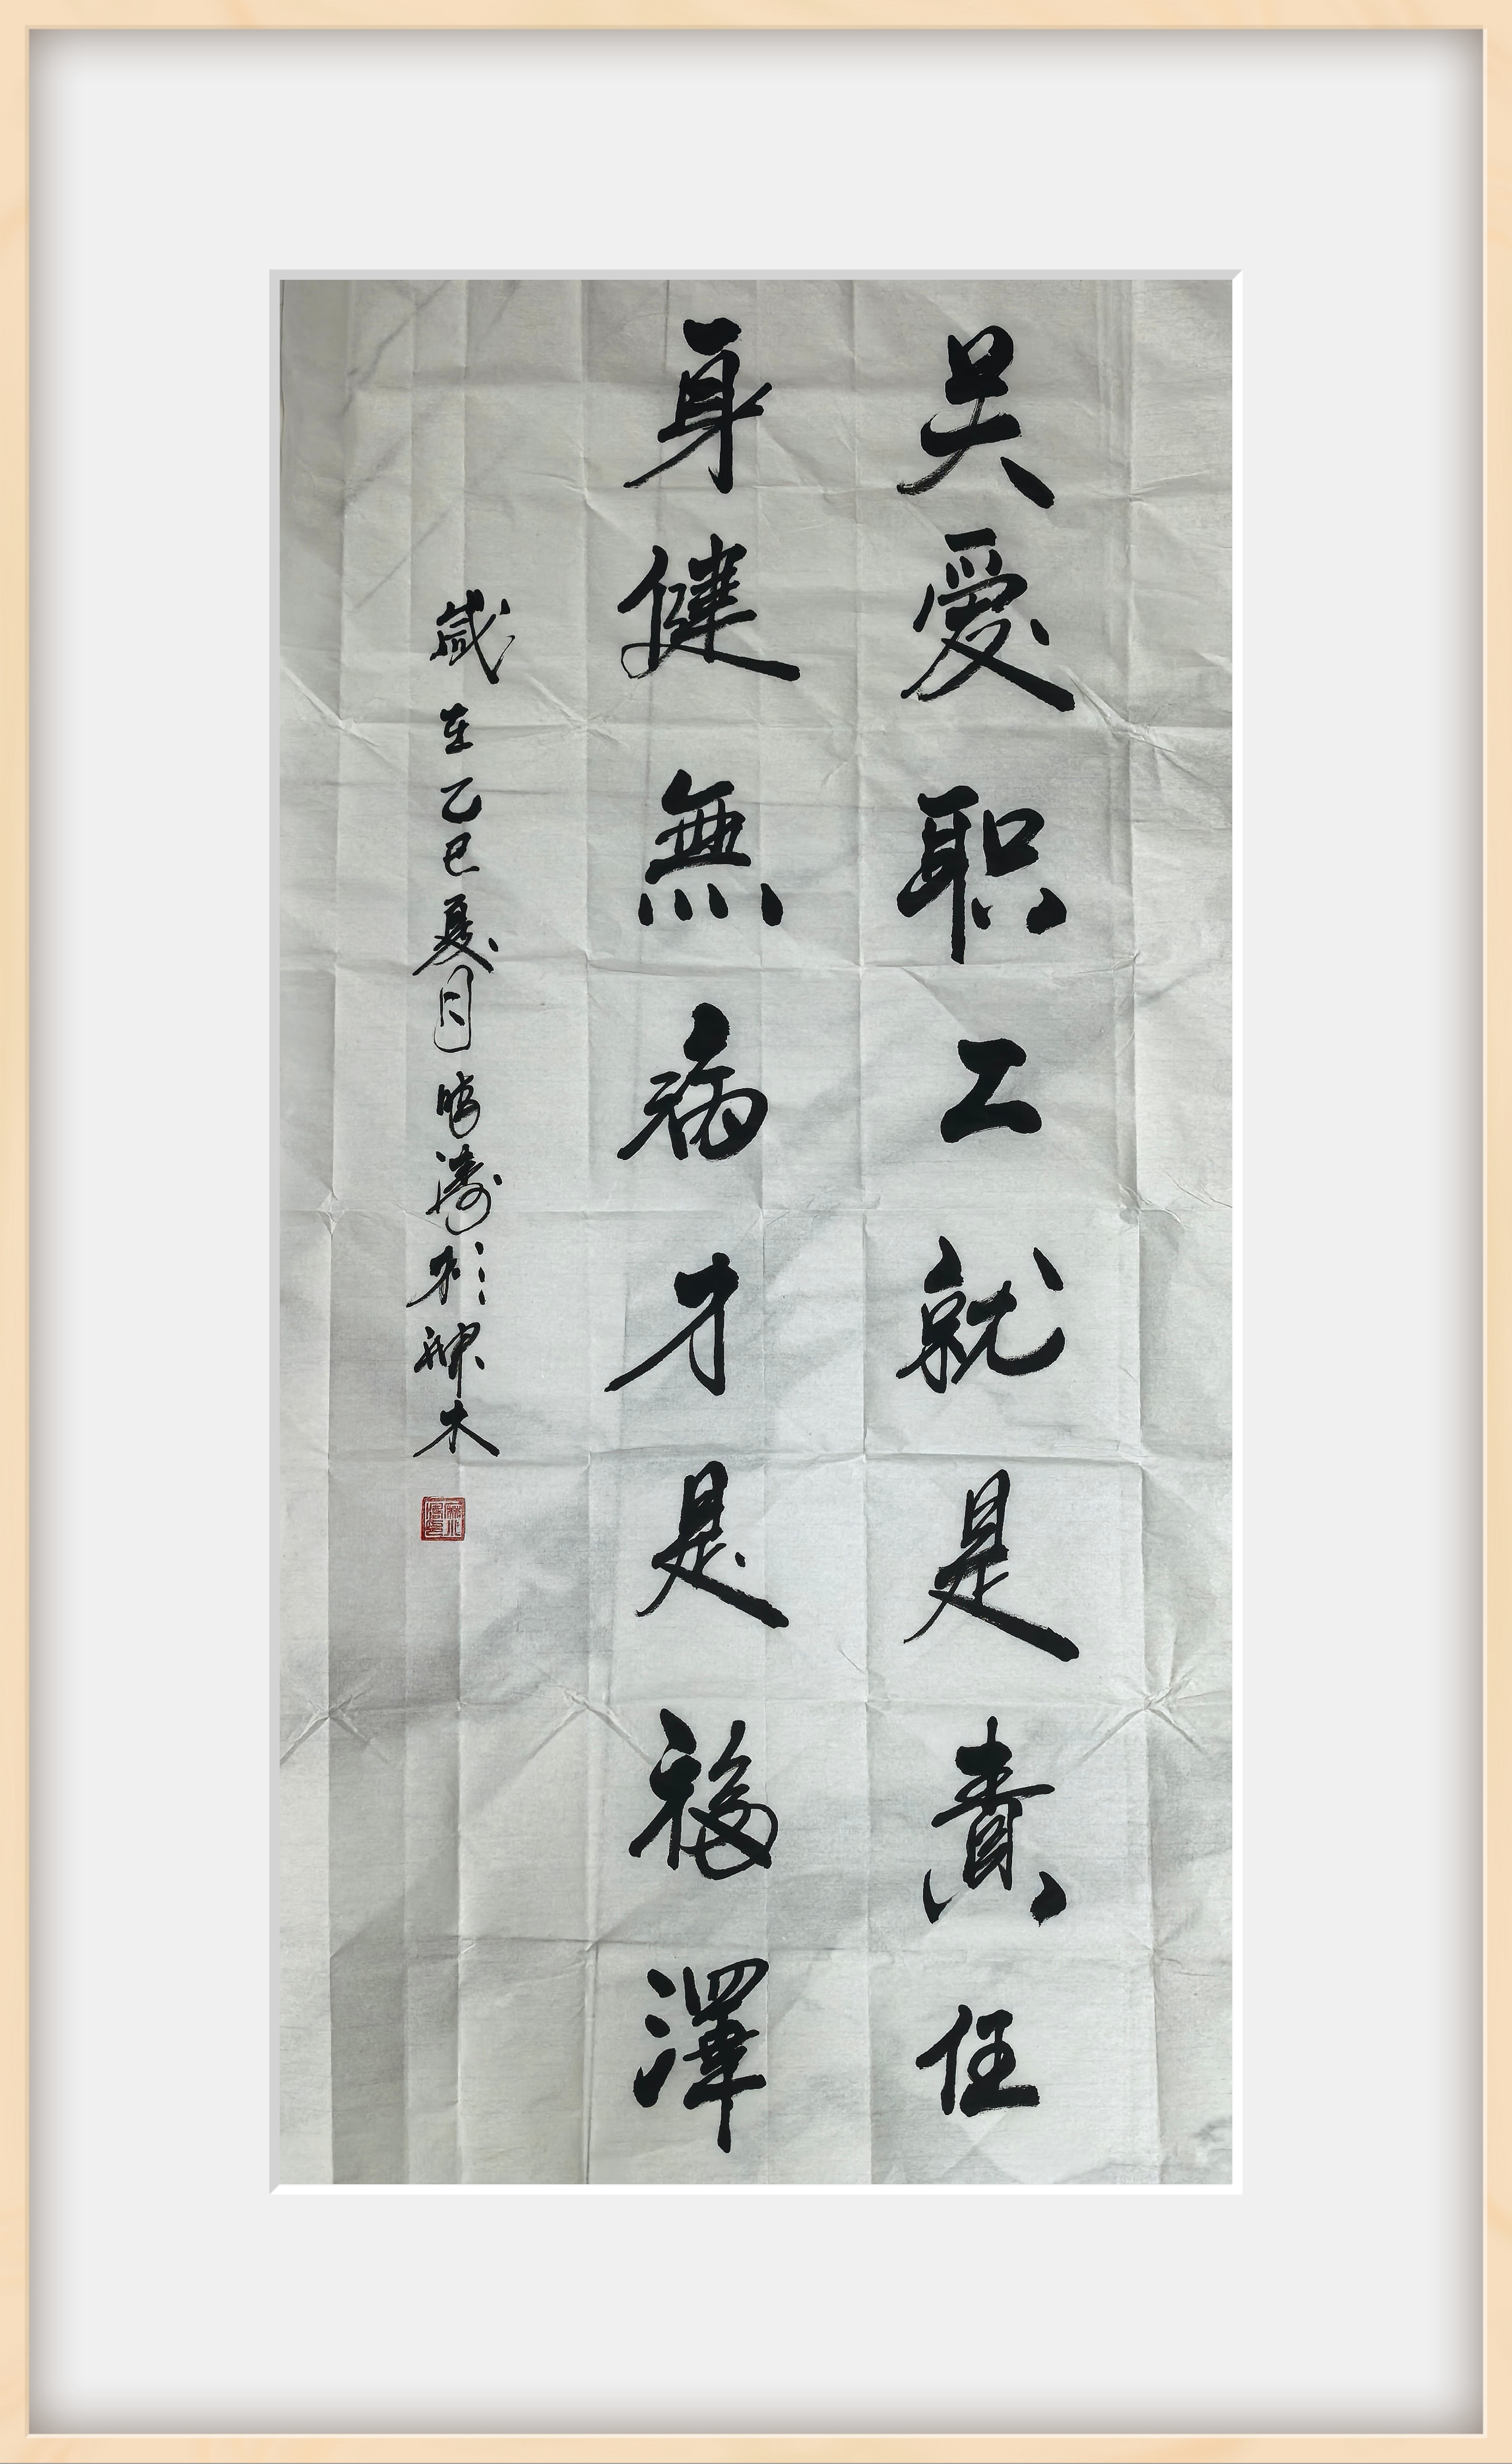 吴愛职工就是責任
身健無病才是福澤
歲在乙巳夏月晓濤於神木